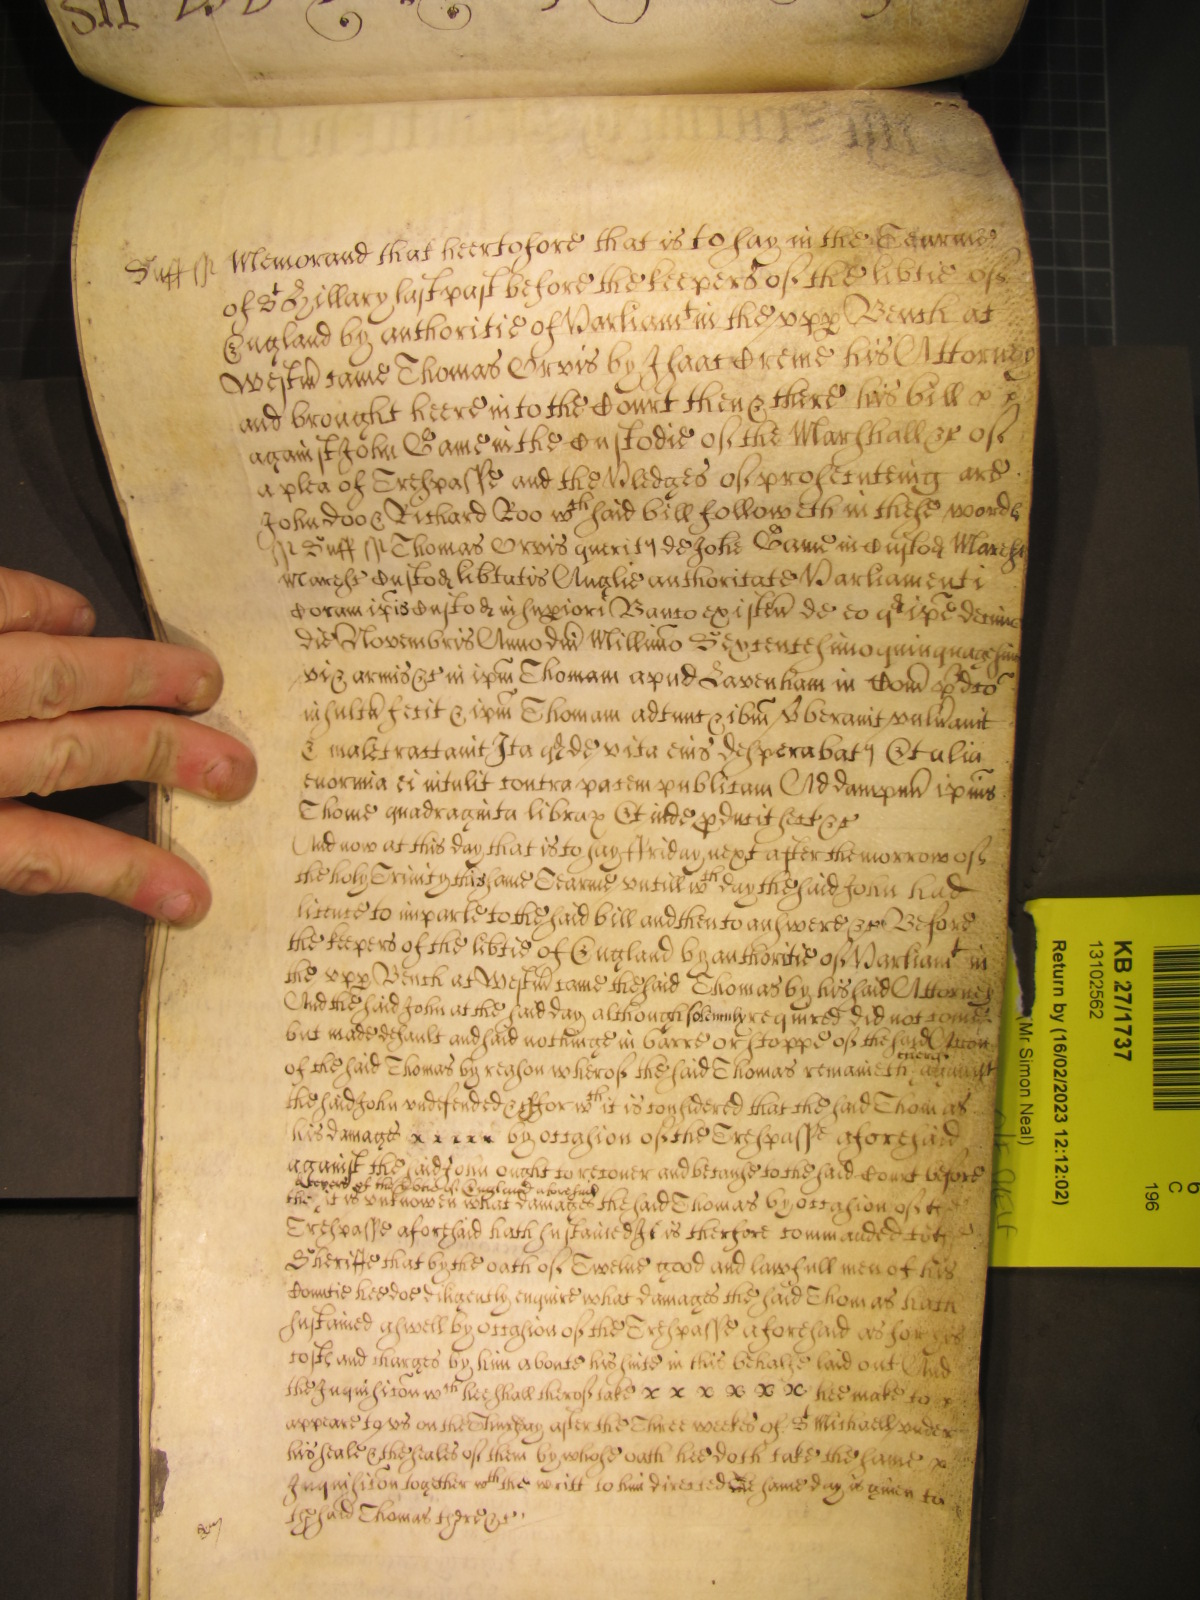 Suff ss Memorand that heertofore that is to say in the Tearme
of St Hillary last past before the keepers of the libtie of
England by authoritie of Parliamt in the upp Bench at
Westm came Thomas Orvis by Isaac Creme his Attorney
and brought heere into the Court then & there his bill x x
against John Game in the Custodie of the Marshall &c of
a plea of Trespasse and the Pledges of prosecuteing are
John doo & Richard Roo wch said bill followeth in these words
ss Suff ss Thomas Orvis querit de Johe Game in Custod
Maresc Custod libtatis Anglie authoritate Parliamenti
Coram ipis Custod in supiori Banco existen de eo qd ipe
die Novembris Anno dni Millimo Sexcentesimo quinquagesimo
vi & armis &c in ipm Thomam apud Lavenham in Com pdco
insultu fecit & ipm Thomam adtunc & ibm vberavit vulnavit
& maletractavit Ita qd de vita eius desperabat Et alia
enormia ei intulit contra pacem publicam Ad dampnu ipius
Thome quadraginta librar Et inde pducit sect &c
And now at this day that is to say ffriday next after the morrow of
the holy Trinity this same Tearme untill wch day the said John had
licence to imparle to the said bill and then to answere &c Before
the keepers of the libtie of England by authoritie of Parliamt in
the upp Bench at Westm came the said Thomas by his said Attorney
And the said John at the said day although solemnly required did not come
but made default and said nothinge in barre or stoppe of the said
of the said Thomas by reason wherof the said Thomas remaineth against
the said John undefended &c ffor wch it is considered that the said Thomas
his damages x x x x x by occasion of the Trespasse aforesaid
against the said John ought to recover and because to the said Court before
keepers of the libtie of England aforesaid
the it is unknowen what damages the said Thomas by occasion of
Trespasse aforesaid hath sustained It is therfore commanded
Sheriffe that by the oath of Twelve good and lawfull men of his
Countie hee doe diligently enquire what damages the said Thomas hath
sustained aswell by occasion of the Trespasse aforesaid as for his
costs and charges by him aboute his suite in this behalfe laid out And
the Inquisicon wch hee shall therof take x x x x x x hee make to x
appeare to us on the after the Three weekes of St Michaell under
his seale & the seales of them by whose oath hee doth take the same x
Inquisicon together wth the writt to him directed the same day is given to
the said Thomas there &c
KB 27/1737
13102562
Return by (16/02/2023 12:12:02)
(Mr Simon Neal)
C
196